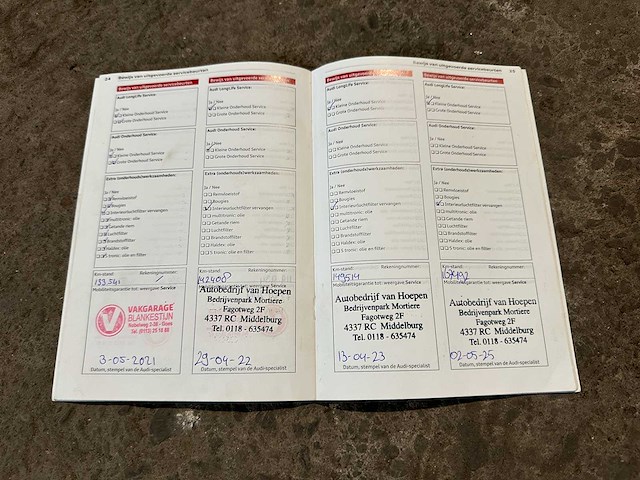 34 Bewijs van uitgevoerde servicebeurten
Bewijs van uitgevoerde servicebeurten
Audi LongLife Service:
Ja / Nee
Kleine Onderhoud Service
Grote Onderhoud Service
Audi Onderhoud Service:
Ja / Nee
Kleine Onderhoud Service
Grote Onderhoud Service
Extra (onderhouds)werkzaamheden:
Ja / Nee
Remvloeistof
Bougies
Interieurluchtfilter vervangen
multitronic: olie
Getande riem
Luchtfilter
Brandstoffilter
Haldex: olie
S tronic: olie en filter
Km-stand: Rekeningnummer:
133.541
Mobiliteitsgarantie tot: weergave Service
VAKGARAGE
BLANKESTIJN
3-05-2021
Datum, stempel van de Audi-specialist
Bewijs van uitgevoerde servicebeurten
Audi LongLife Service:
Ja / Nee
Kleine Onderhoud Service
Grote Onderhoud Service
Audi Onderhoud Service:
Ja / Nee
Kleine Onderhoud Service
Grote Onderhoud Service
Extra (onderhouds)werkzaamheden:
Ja / Nee
Remvloeistof
Bougies
Interieurluchtfilter vervangen
multitronic: olie
Getande riem
Luchtfilter
Brandstoffilter
Haldex: olie
S tronic: olie en filter
Km-stand: Rekeningnummer:
142408
Mobiliteitsgarantie tot: weergave Service
Autobedrijf van Hoepen
Bedrijvenpark Mortiere
Fagotweg 2F
4337 RC Middelburg
Tel. 0118 - 635474
29-04-22
Datum, stempel van de Audi-specialist
Bewijs van uitgevoerde servicebeurten 35
Bewijs van uitgevoerde servicebeurten
Audi LongLife Service:
Ja / Nee
Kleine Onderhoud Service
Grote Onderhoud Service
Audi Onderhoud Service:
Ja / Nee
Kleine Onderhoud Service
Grote Onderhoud Service
Extra (onderhouds)werkzaamheden:
Ja / Nee
Remvloeistof
Bougies
Interieurluchtfilter vervangen
multitronic: olie
Getande riem
Luchtfilter
Brandstoffilter
Haldex: olie
S tronic: olie en filter
Km-stand: Rekeningnummer:
149514
Mobiliteitsgarantie tot: weergave Service
Autobedrijf van Hoepen
Bedrijvenpark Mortiere
Fagotweg 2F
4337 RC Middelburg
Tel. 0118 - 635474
13-04-23
Datum, stempel van de Audi-specialist
Bewijs van uitgevoerde servicebeurten
Audi LongLife Service:
Ja / Nee
Kleine Onderhoud Service
Grote Onderhoud Service
Audi Onderhoud Service:
Ja / Nee
Kleine Onderhoud Service
Grote Onderhoud Service
Extra (onderhouds)werkzaamheden:
Ja / Nee
Remvloeistof
Bougies
Interieurluchtfilter vervangen
multitronic: olie
Getande riem
Luchtfilter
Brandstoffilter
Haldex: olie
S tronic: olie en filter
Km-stand: Rekeningnummer:
Mobiliteitsgarantie tot: weergave Service
Autobedrijf van Hoepen
Bedrijvenpark Mortiere
Fagotweg 2F
4337 RC Middelburg
Tel. 0118 - 635474
02-05-25
Datum, stempel van de Audi-specialist